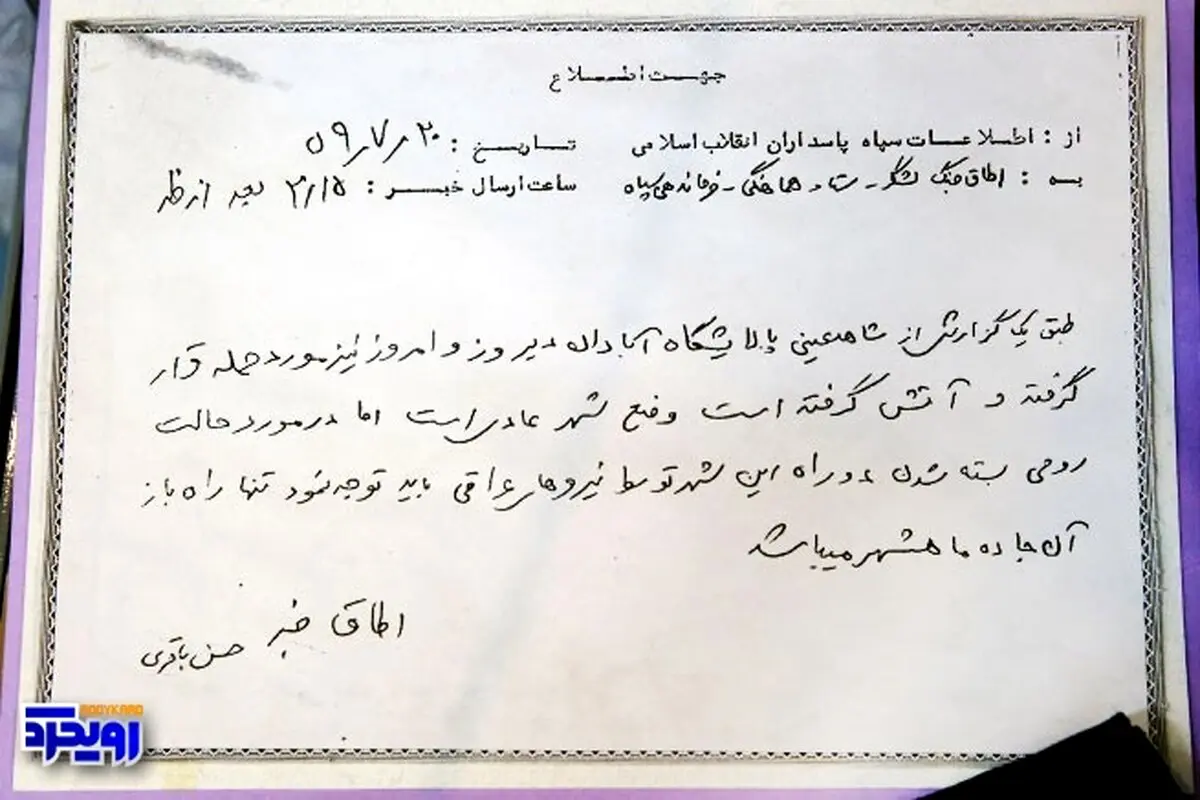 جهت اطلاع
از : اطلاعات سپاه پاسداران انقلاب اسلامی تاریخ : ۲۰ر۷ر۵۹
به : اطاق جنگ لشگر - ستاد هماهنگی - فرماندهی سپاه ساعت ارسال خبر : ۳/۱۵ بعد از ظهر
طبق یک گزارش از شاهد عینی پالایشگاه آبادان دیروز و امروز نیز مورد حمله قرار
گرفته و آتش گرفته است وضع شهر عادی است اما در مورد حالت
روحی بسته شدن دو راه این شهر توسط نیروهای عراقی باید توجه نمود تنها راه باز
آن جاده ماهشهر میباشد
اطاق خبر
حسن باقری
رویکرد